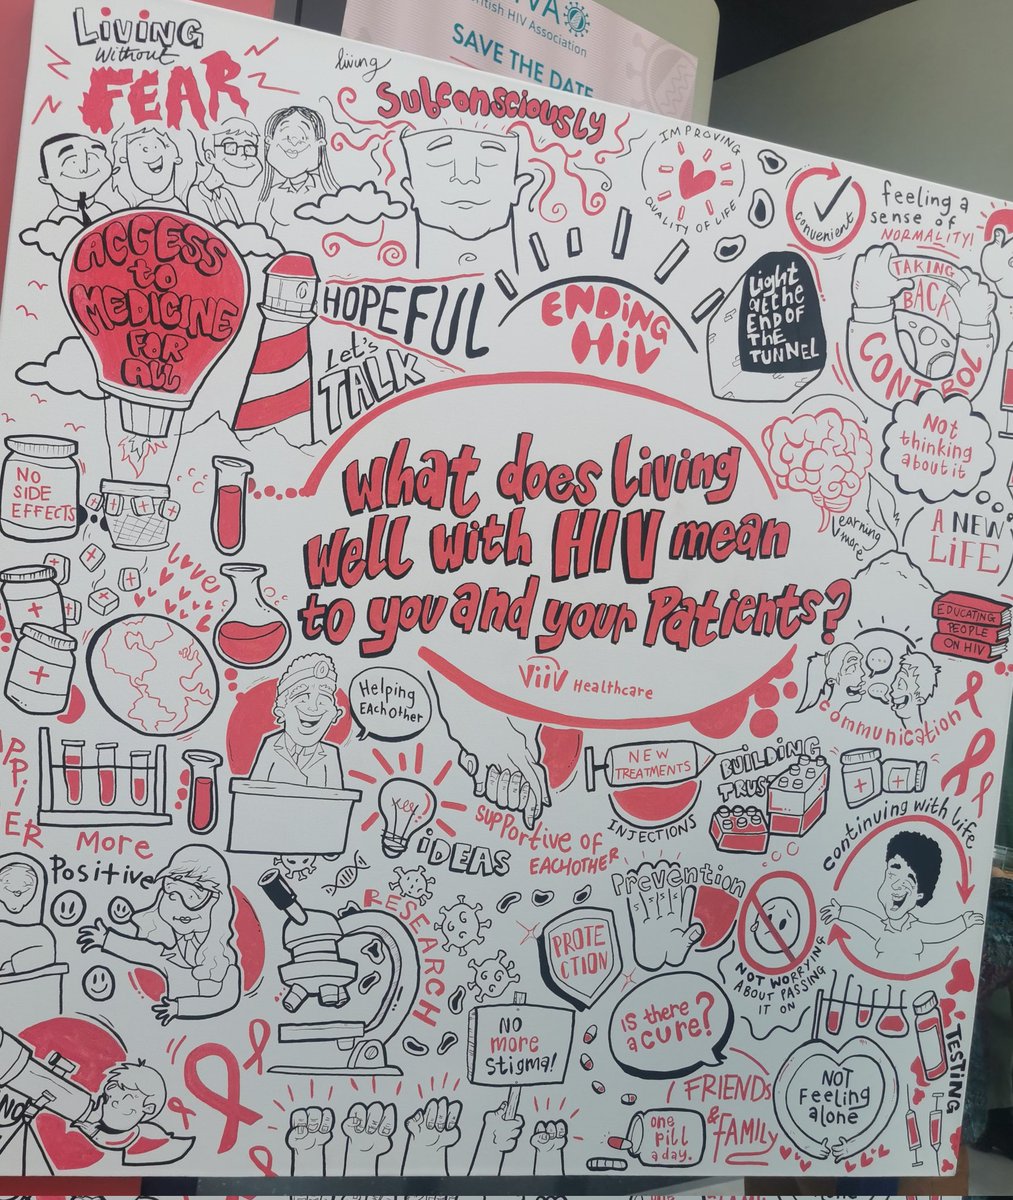 British HIV Association
SAVE THE DATE
LiViNG
without
FEAR
living
Subconsciously
IMPROVING
QUALITY OF LIFE
convenient
feeling a
sense of
NORMALITY!
ACCESS
to
MEDICINE
FOR
ALL
HOPEFUL
Let's
TALK
ENDiNG
HiV
Light
at the
END OF
THE
TUNNEL
TAKING
BACK
CONTROL
Not
thinking
about it
NO
SIDE
EFFECTS
What does living
Well with HIV mean
to you and your Patients?
ViiV Healthcare
learning
more
A NEW
LiFE
EDUCATING
PEOPLE
ON HIV
love
Helping
EAchother
communication
NEW
TREATMENTS
INJECTIONS
BUiLDING
TRUST
SUPPORTIVE OF
EACHOTHER
iDEAS
continuing with life
More
Positive
RESEARCH
Prevention
PROTE
CTION
NOT WORRYING
ABOUT PASSING
IT ON
NO
MORE
STIGMA!
is there
a cure?
TESTING
FRIENDS
& FAMILY
NOT
Feeling
alone
one
pill
a day.
NO